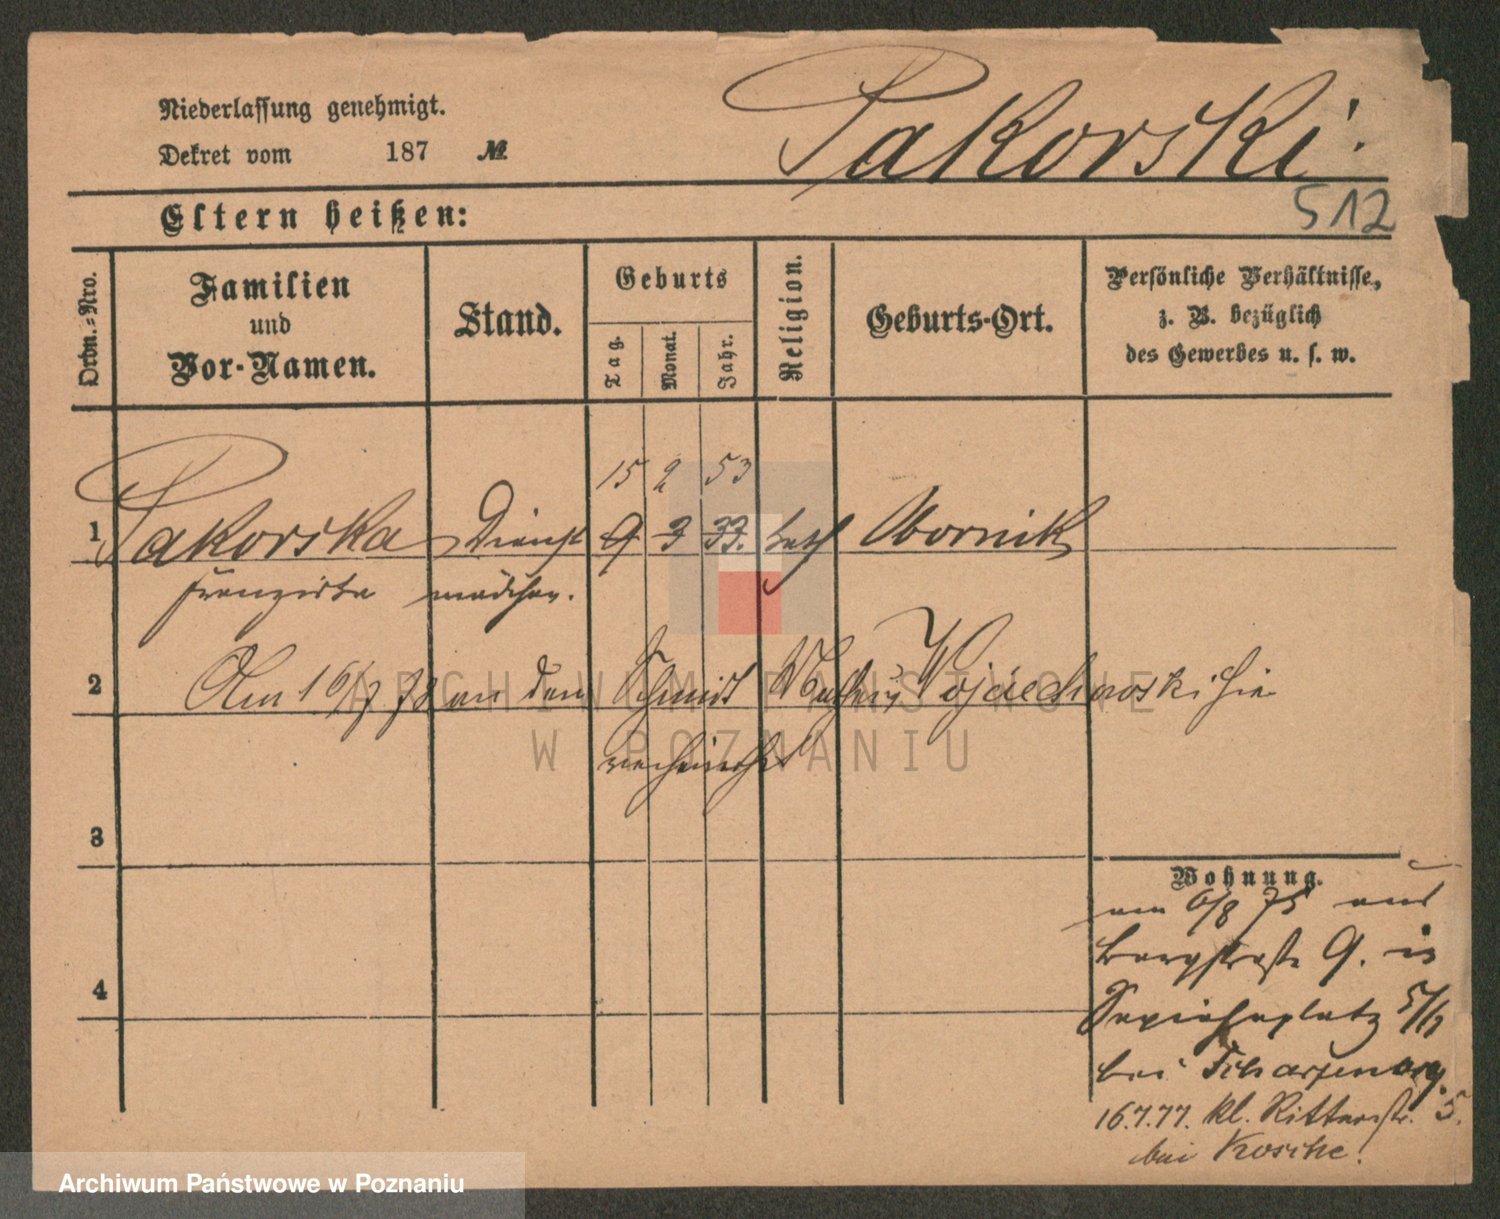 Niederlassung genehmigt.
Dekret vom 187 №
Pakorski.
512
Eltern heißen:
Ordn.-Nro.
Familien
und
Vor-Namen.
Stand.
Geburts
Tag.
Monat.
Jahr.
Religion.
Geburts-Ort.
Persönliche Verhältnisse,
z. B. bezüglich
des Gewerbes u. s. w.
15 2 53
1 Pakorska Dienst 9 3 33. kath Obornik
Franziska mädchen.
2 Am 16/7 78 an den Schmidt Wojciechowski hier
verheirathet
3
4
Wohnung.
am 6/8 75 aus
Bergstraße 9. in
Sapiehaplatz
bei Scharfenorg.
16.7.77. kl. Ritterstr. 5.
bei Koschke.
ARCHIWUM PAŃSTWOWE
W POZNANIU
Archiwum Państwowe w Poznaniu